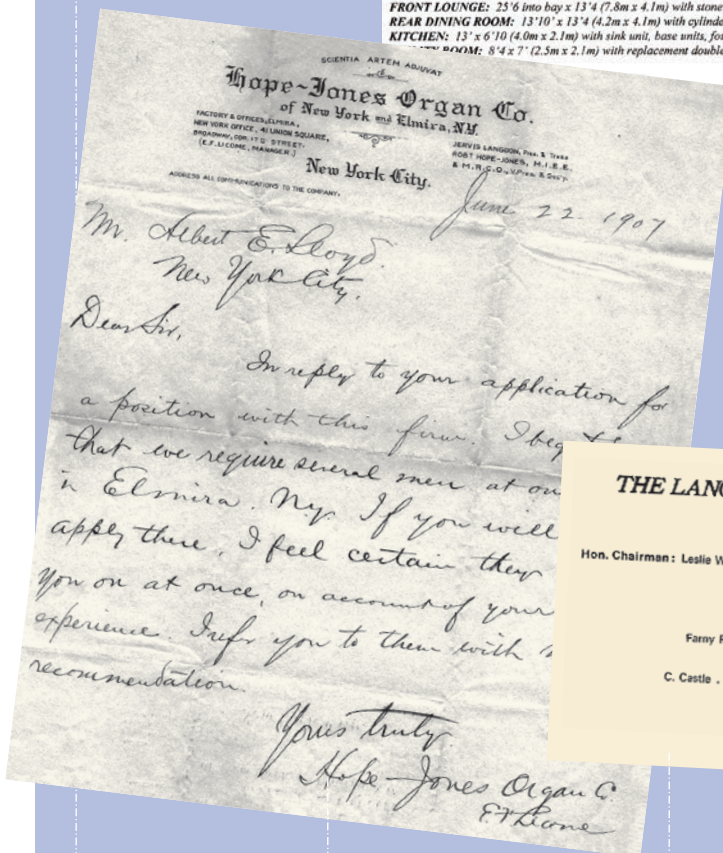 FRONT LOUNGE: 25'6 into bay x 13'4 (7.8m x 4.1m) with stone
REAR DINING ROOM: 13'10' x 13'4 (4.2m x 4.1m) with cylinde
KITCHEN: 13' x 6'10 (4.0m x 2.1m) with sink unit, base units, fou
ROOM: 8'4 x 7' (2.5m x 2.1m) with replacement double
SCIENTIA ARTEM ADJUVAT
Hope-Jones Organ Co.
of New York and Elmira, N.Y.
FACTORY & OFFICES, ELMIRA,
NEW YORK OFFICE, 41 UNION SQUARE,
BROADWAY, COR. 17TH STREET.
(E.F. LICOME, MANAGER.)
JERVIS LANGDON, Pres. & Treas
ROBT HOPE-JONES, M.I.E.E.
& M.R.C.O., V.Pres. & Sec'y.
New York City.
ADDRESS ALL COMMUNICATIONS TO THE COMPANY.
June 22 1907
Mr. Albert E. Lloyd.
New York City.
Dear Sir,
In reply to your application for
a position with this firm. I beg
that we require several men at ou
in Elmira. Ny. If you will
apply there, I feel certain they
you on at once, on account of your
experience. I refer you to them with
recommendation.
Yours truly.
Hope-Jones Organ C.
E F Licome
THE LANG
Hon. Chairman: Leslie W
Farny
C. Castle .